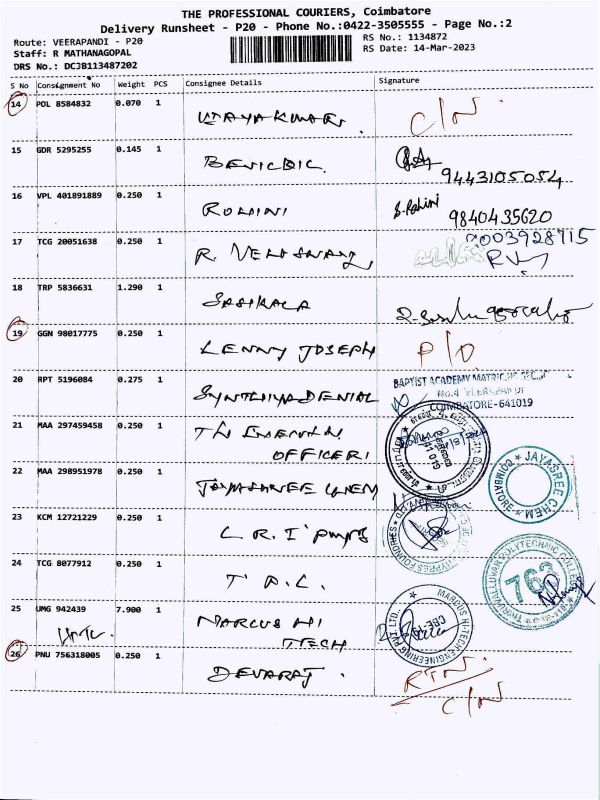 THE PROFESSIONAL COURIERS, Coimbatore
Delivery Runsheet - P20 - Phone No.:0422-3505555 - Page No.:2
Route: VEERAPANDI - P20
Staff: R MATHANAGOPAL
DRS No.: DCJB113487202
RS No.: 1134872
RS Date: 14-Mar-2023
S No Consignment No Weight PCS Consignee Details Signature
14 POL 8584832 0.070 1 C/N.
15 GDR 5295255 0.145 1
9443105054
16 VPL 401891889 0.250 1 ROHINI S. Rohini
9840435620
17 TCG 20051638 0.250 1 R. 9003928715
18 TRP 5836631 1.290 1 SASIKALA
19 GGN 98017775 0.250 1 LENNY JOSEPH P/D
20 RPT 5196084 0.275 1
BAPTIST ACADEMY
No.4 VEERAPANDI
COIMBATORE-641019
21 MAA 297459458 0.250 1
OFFICER
22 MAA 298951978 0.250 1 JAYASHREE CHEM
JAYASREE CHEM ★ COIMBATORE ★
23 KCM 12721229 0.250 1 L.R.I
24 TCG 8077912 0.250 1 T.P.C.
THIRUVALLUVAR POLYTECHNIC COLLEGE
763
25 UMG 942439 7.900 1 MARCUS HI
TECH
MARCUS HI-TECH ENGINEERING PVT. LTD.
CBE-19
26 PNU 756318005 0.250 1 DEVARAJ. RTN.
C/N